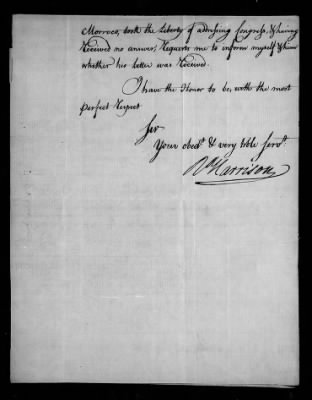 Morroco, took the Liberty of addressing Congress, & having
Received no answer, Requests me to inform myself & him
whether his letter was Received.
I have the Honor to be, with the most
perfect Respect
Sir
Your obedt. & very hble servt.
Rd Harrison